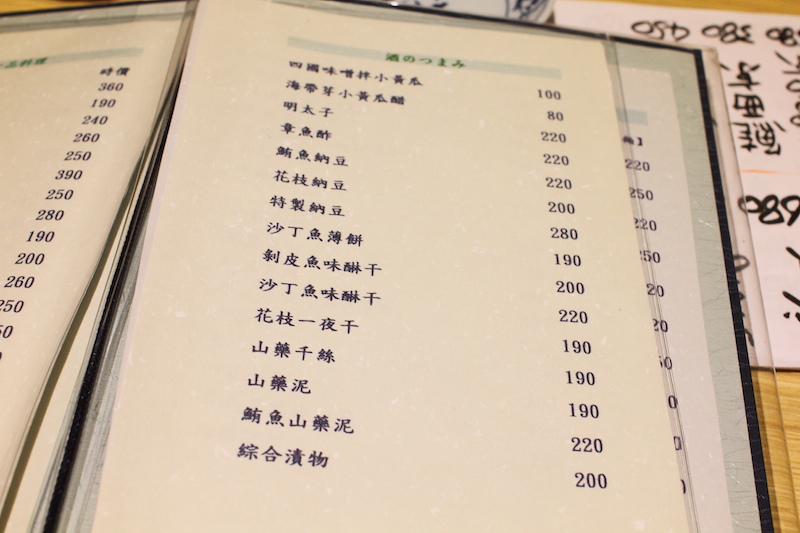 品料理
時價
360
190
240
260
250
390
250
280
190
200
260
250
酒のつまみ
四國味噌拌小黃瓜 100
海帶芽小黃瓜醋 80
明太子 220
章魚酢 220
鮪魚納豆 220
花枝納豆 200
特製納豆 280
沙丁魚薄餅 190
剝皮魚味醂干 200
沙丁魚味醂干 220
花枝一夜干 190
山藥千絲 190
山藥泥 190
鮪魚山藥泥 220
綜合漬物 200
220
250
220
380 450
680